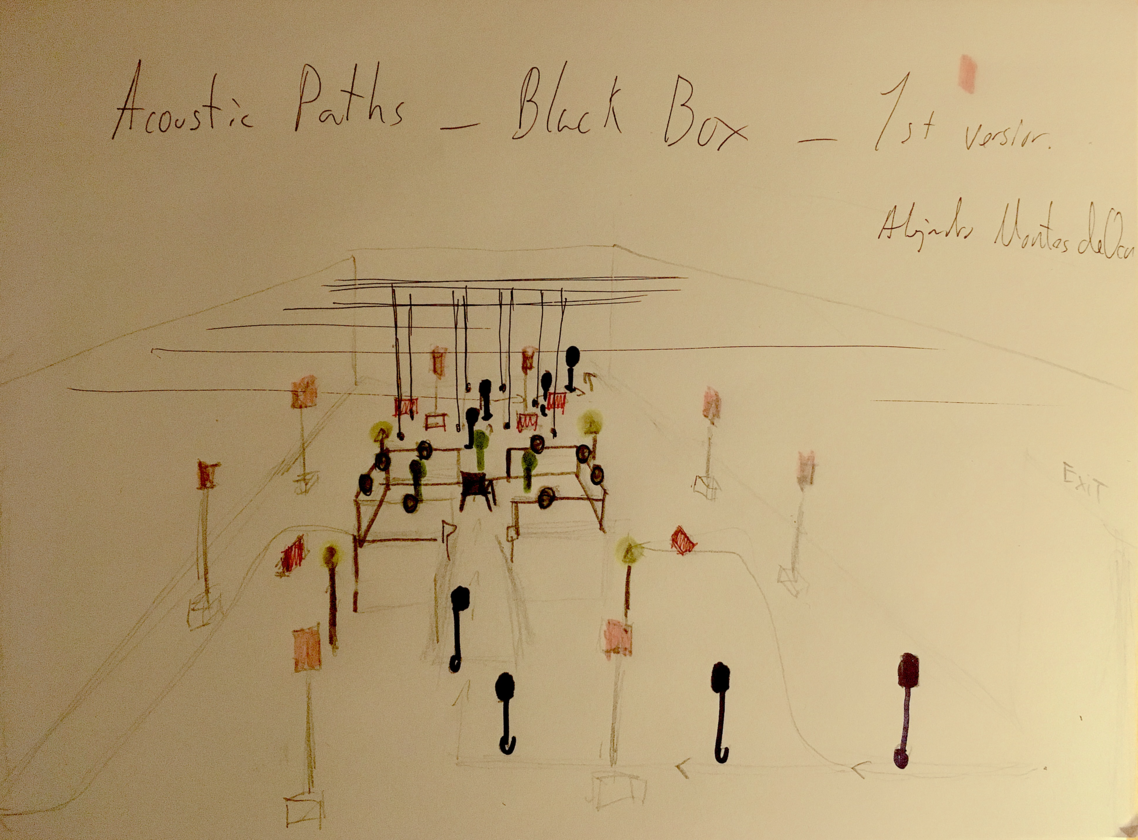 Acoustic Paths - Black Box - 1st version.
Alejandro Montes de Oca
EXIT